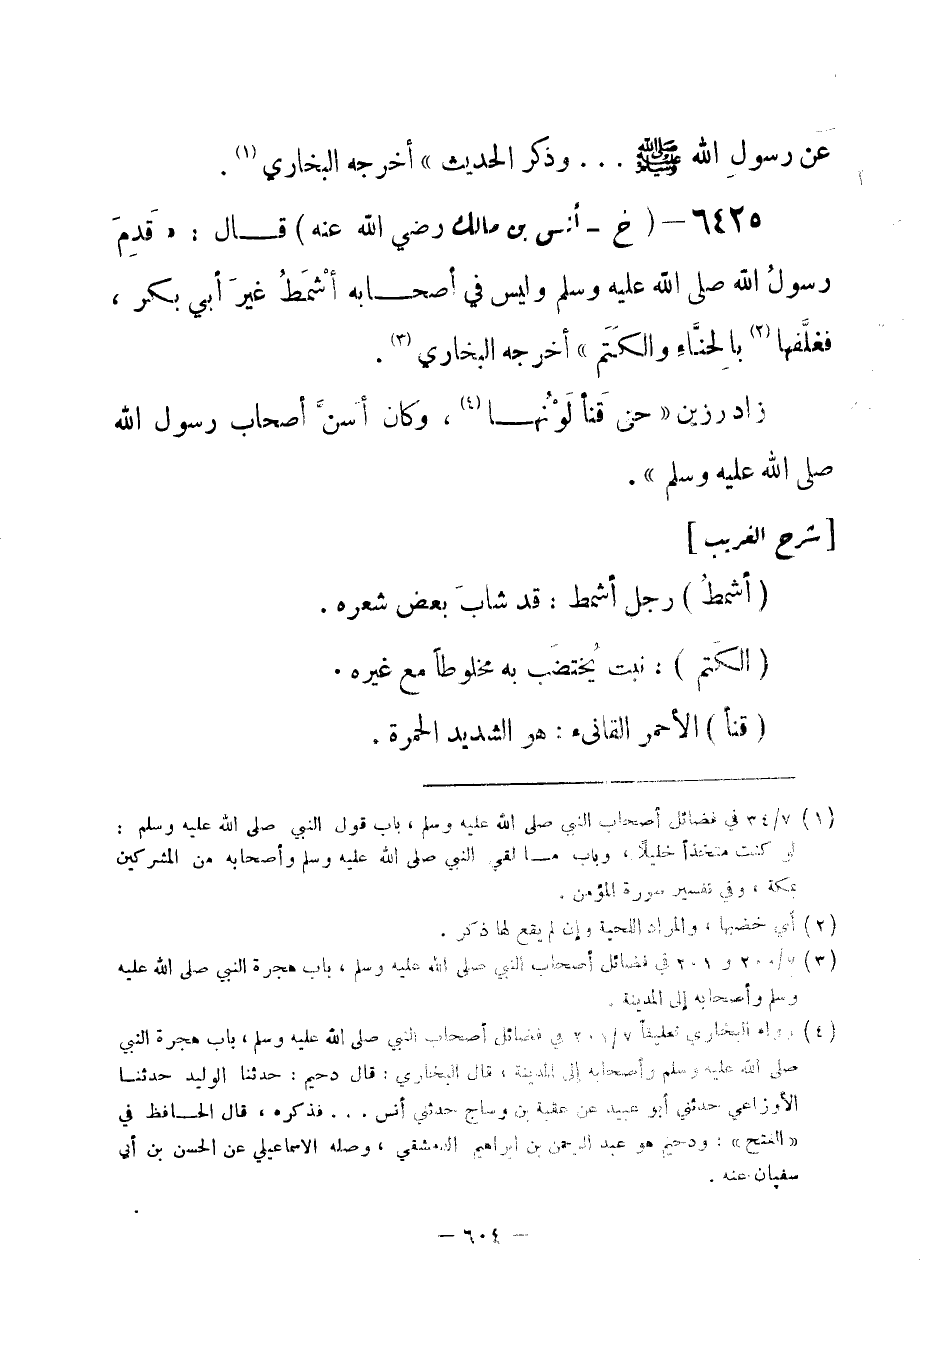 عَن رسولِ الله ﷺ . . . وذكر الحديث » أخرجه البخاري (١) .
٦٤٢٥ – ( خ – أنس بن مالك رضي الله عنه ) قــال : « قَدِمَ
رسولُ الله صلى الله عليه وسلم وليس في أصحــابه أشْمَطُ غيرَ أبي بكر ،
فغلَّفها (٢) بالِحنَّاءِ والكَتَم » أخرجه البخاري (٣) .
زاد رزين « حتى قَنأ لَوْنُهــا (٤) ، وكان أسنَّ أصحاب رسول الله
صلى الله عليه وسلم » .
[ شرح الغريب ]
( أشمطُ ) رجل أشمط : قد شابَ بعض شعره .
( الكَتم ) : نبت يُختضَب به مخلوطاً مع غيره .
( قنأ ) الأحمر القانىء : هو الشديد الحمرة .
(١) ٣٤/٧ في فضائل أصحاب النبي صلى الله عليه وسلم ، باب قول النبي صلى الله عليه وسلم :
لو كنت متخذاً خليلاً ، وباب مــا لقي النبي صلى الله عليه وسلم وأصحابه من المشركين
بمكة ، وفي تفسير سورة المؤمن .
(٢) أي خضبها ، والمراد اللحية وإن لم يقع لها ذكر .
(٣) ٢٠٠/٧ و ٢٠١ في فضائل أصحاب النبي صلى الله عليه وسلم ، باب هجرة النبي صلى الله عليه
وسلم وأصحابه إلى المدينة .
(٤) رواه البخاري تعليقاً ٢٠١/٧ في فضائل أصحاب النبي صلى الله عليه وسلم ، باب هجرة النبي
صلى الله عليه وسلم وأصحابه إلى المدينة ، قال البخاري : قال دحيم : حدثنا الوليد حدثنــا
الأوزاعي حدثني أبو عبيد عن عقبة بن وساج حدثني أنس . . . فذكره ، قال الحــافظ في
« الفتح » : ودحيم هو عبد الرحمن بن ابراهيم الدمشقي ، وصله الاسماعيلي عن الحسن بن أبي
سفيان عنه .
– ٦٠٤ –